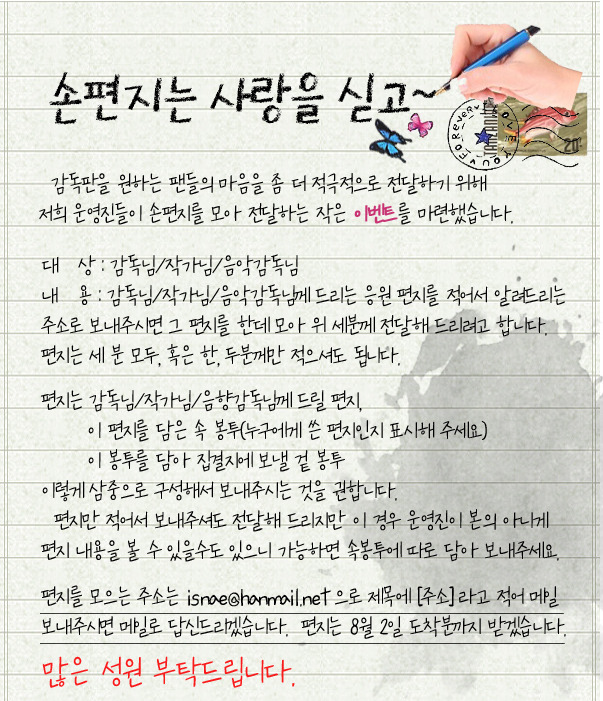 손편지는 사랑을 싣고~
FOREVER
LOVE YOU
TANZANIA
20
감독판을 원하는 팬들의 마음을 좀 더 적극적으로 전달하기 위해
저희 운영진들이 손편지를 모아 전달하는 작은 이벤트를 마련했습니다.
대 상 : 감독님/작가님/음악감독님
내 용 : 감독님/작가님/음악감독님께 드리는 응원 편지를 적어서 알려드리는
주소로 보내주시면 그 편지를 한데 모아 위 세분께 전달해 드리려고 합니다.
편지는 세 분 모두, 혹은 한, 두분께만 적으셔도 됩니다.
편지는 감독님/작가님/음향감독님께 드릴 편지,
이 편지를 담은 속 봉투(누구에게 쓴 편지인지 표시해 주세요)
이 봉투를 담아 집결지에 보낼 겉 봉투
이렇게 삼중으로 구성해서 보내주시는 것을 권합니다.
편지만 적어서 보내주셔도 전달해 드리지만 이 경우 운영진이 본의 아니게
편지 내용을 볼 수 있을수도 있으니 가능하면 속봉투에 따로 담아 보내주세요.
편지를 모으는 주소는 isnae@hanmail.net 으로 제목에 [주소] 라고 적어 메일
보내주시면 메일로 답신드리겠습니다. 편지는 8월 2일 도착분까지 받겠습니다.
많은 성원 부탁드립니다.